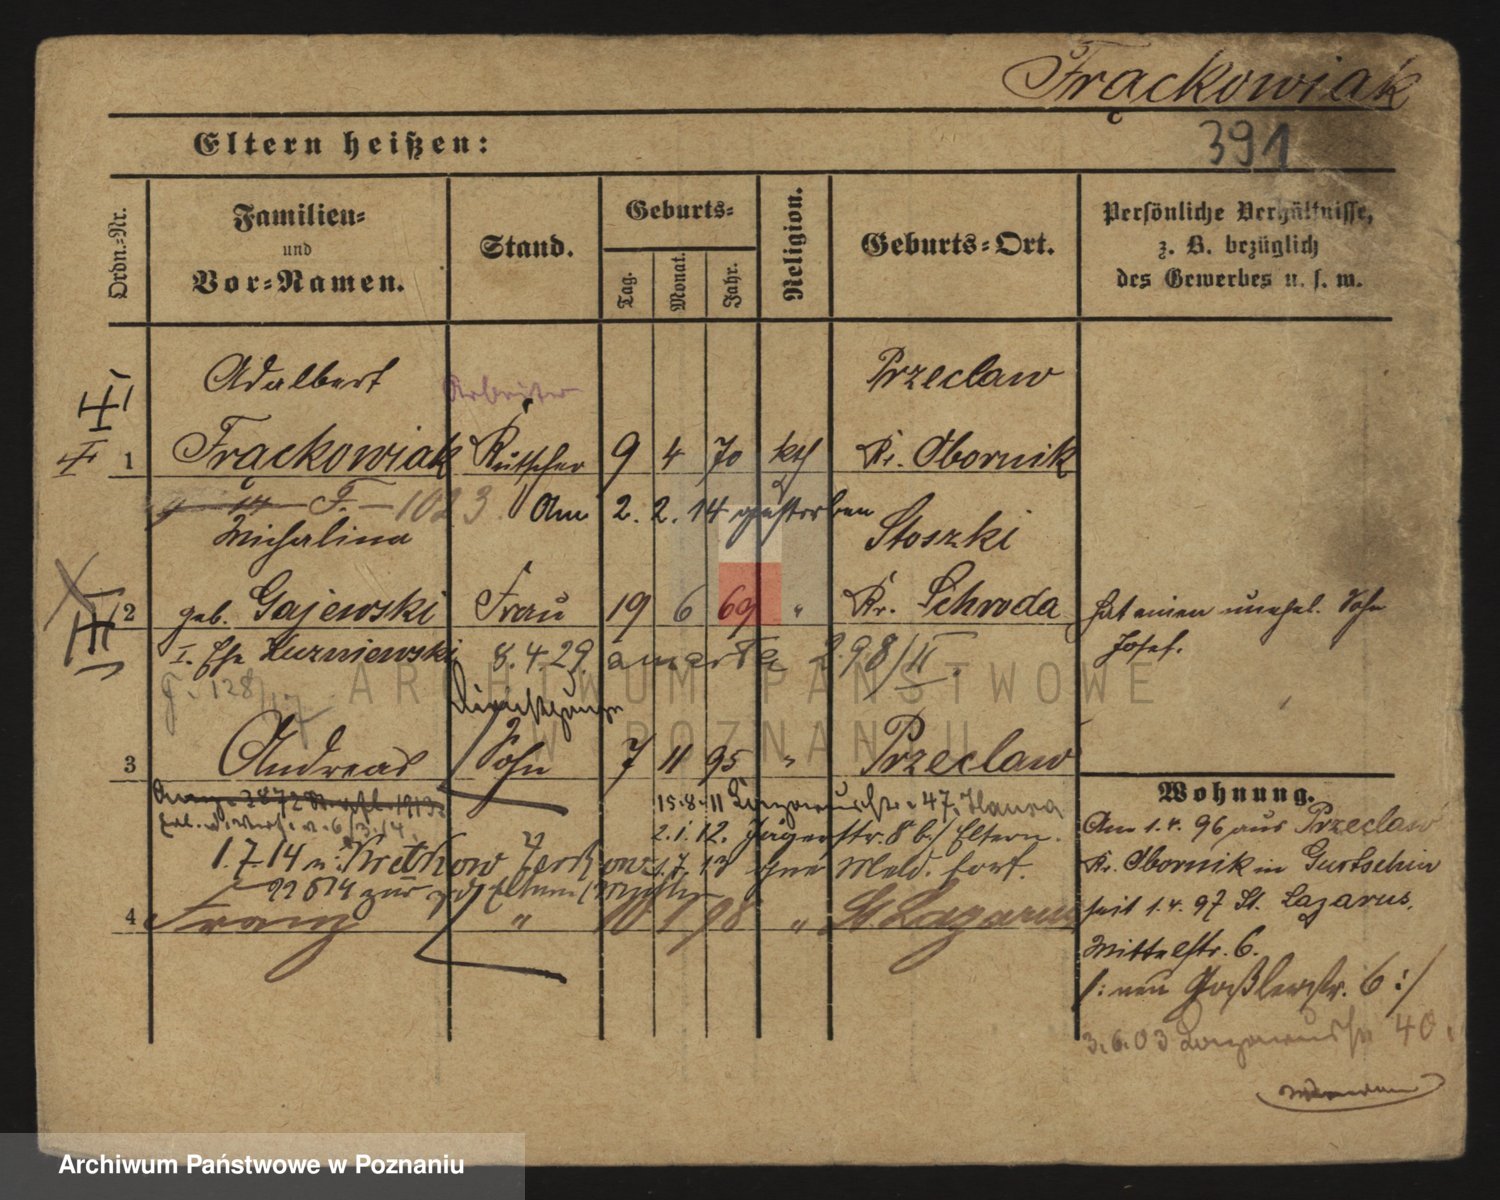 Frąckowiak
391
Eltern heißen:
Ordn.-Nr.
Familien-
und
Vor-Namen.
Stand.
Geburts-
Tag.
Monat.
Jahr.
Religion.
Geburts-Ort.
Persönliche Verhältnisse,
z. B. bezüglich
des Gewerbes u. s. m.
Adalbert Arbeiter Przeclaw
1 Frąckowiak Kutscher 9 4 70 kth Kr. Obornik
F. - 1023 Am 2. 2. 14 gestorben
Michalina Stoszki
2 geb. Gajewski Frau 19 6 69 " Kr. Schroda Hat einen unehel. Sohn
Josef.
I. Ehe Kuzniewski 8. 4. 29. 298/II.
128/17
ARCHIWUM PAŃSTWOWE
W POZNANIU
3 Andreas Sohn 7 11 95 " Przeclaw
Wohnung.
15.8.11 Lazarusstr. 47.
2.1.12. Jägerstr. 8 b/ Eltern.
1.7.14 n. Krethkow
4 Franz " 10 1 98 " St. Lazarus
Am 1. 4. 96 aus Przeclaw
Kr. Obornik in Gurtschin
seit 1. 4. 97 St. Lazarus,
Mittelstr. 6.
/: neu Goßlerstr. 6 :/
3.6.03 Lazarusstr 40.
Archiwum Państwowe w Poznaniu